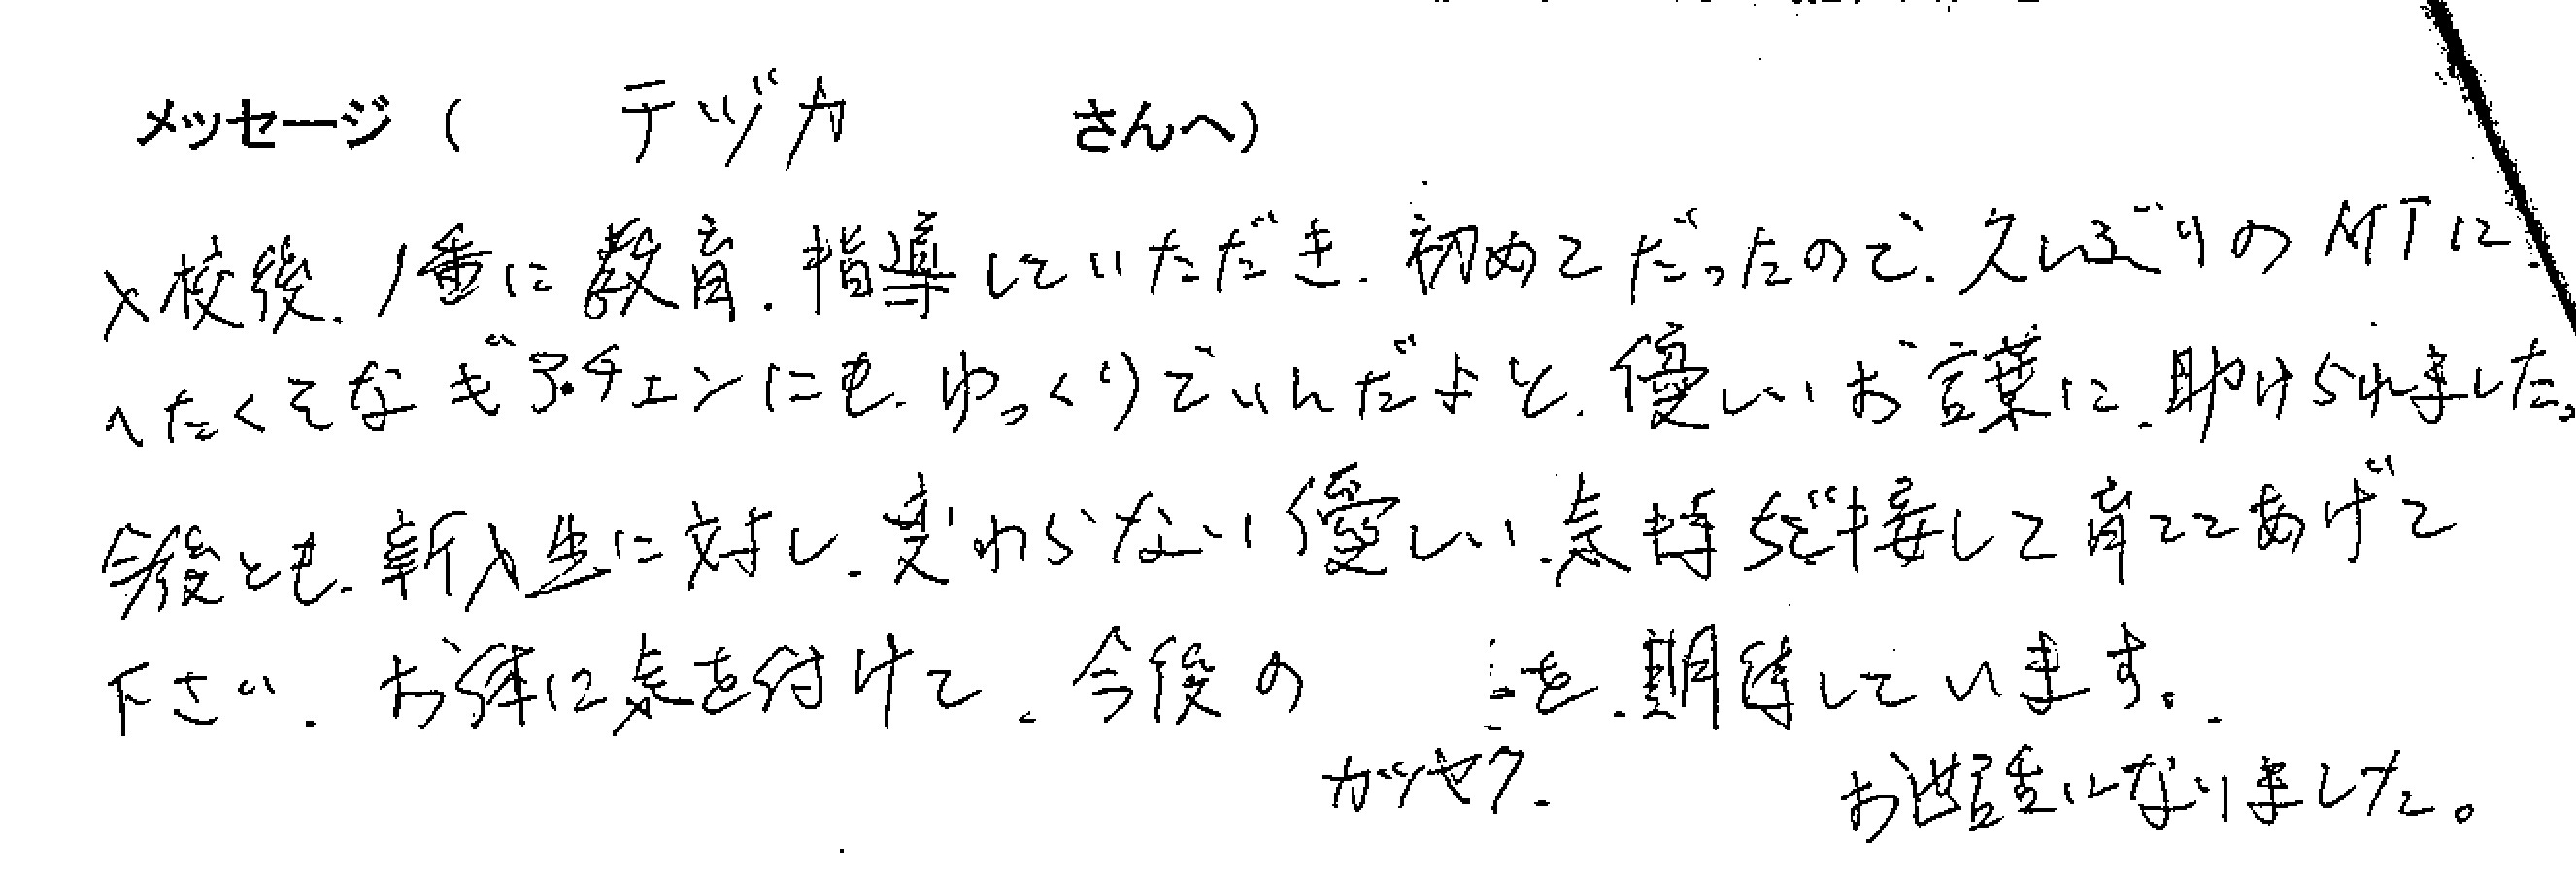 メッセージ ( テヅカ さんへ)
入校後、1番に教育、指導していただき、初めてだったので、久しぶりのMTに、
へたくそなギアチェンにも、ゆっくりでいいんだよと、優しいお言葉に、助けられました。
今後とも、新入生に対し、変わらない優しい気持ちで接して育ててあげて
下さい。お体に気を付けて、今後の を、期待しています。
お世話になりました。